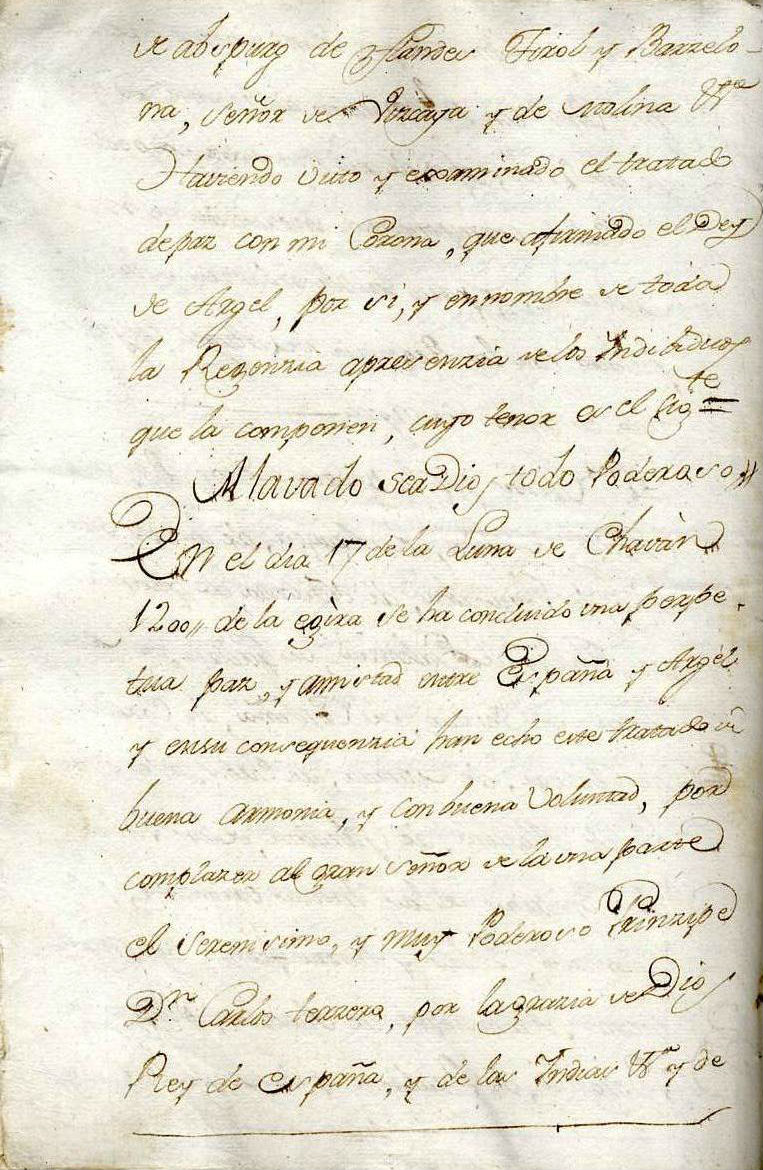 de abspurg de Flandes Tirol y Barzelo-
na, señor de Vizcaya y de Molina &ª
Haviendo visto y examinado el tratado
de paz con mi Corona, que a firmado el Dey
de Argel, por si, y en nombre de toda
la Regenzia apresenzia de los Individuos
que la componen, cuyo tenor es el sigte =
Alavado sea Dios todo Poderoso,,
En el dia 17 de la Luna de Chavàn
1200,, de la egira se ha concluido una perpe-
tua paz, y amistad entre España y Argèl
y en su consequenzia han echo este tratado de
buena armonia, y con buena Voluntad, por
complazer al gran señor de la una parte
el serenisimo, y muy Poderoso Prinzipe
Dn Carlos terzero, por la grazia de Dios
Rey de España, y de las Indias &ª y de